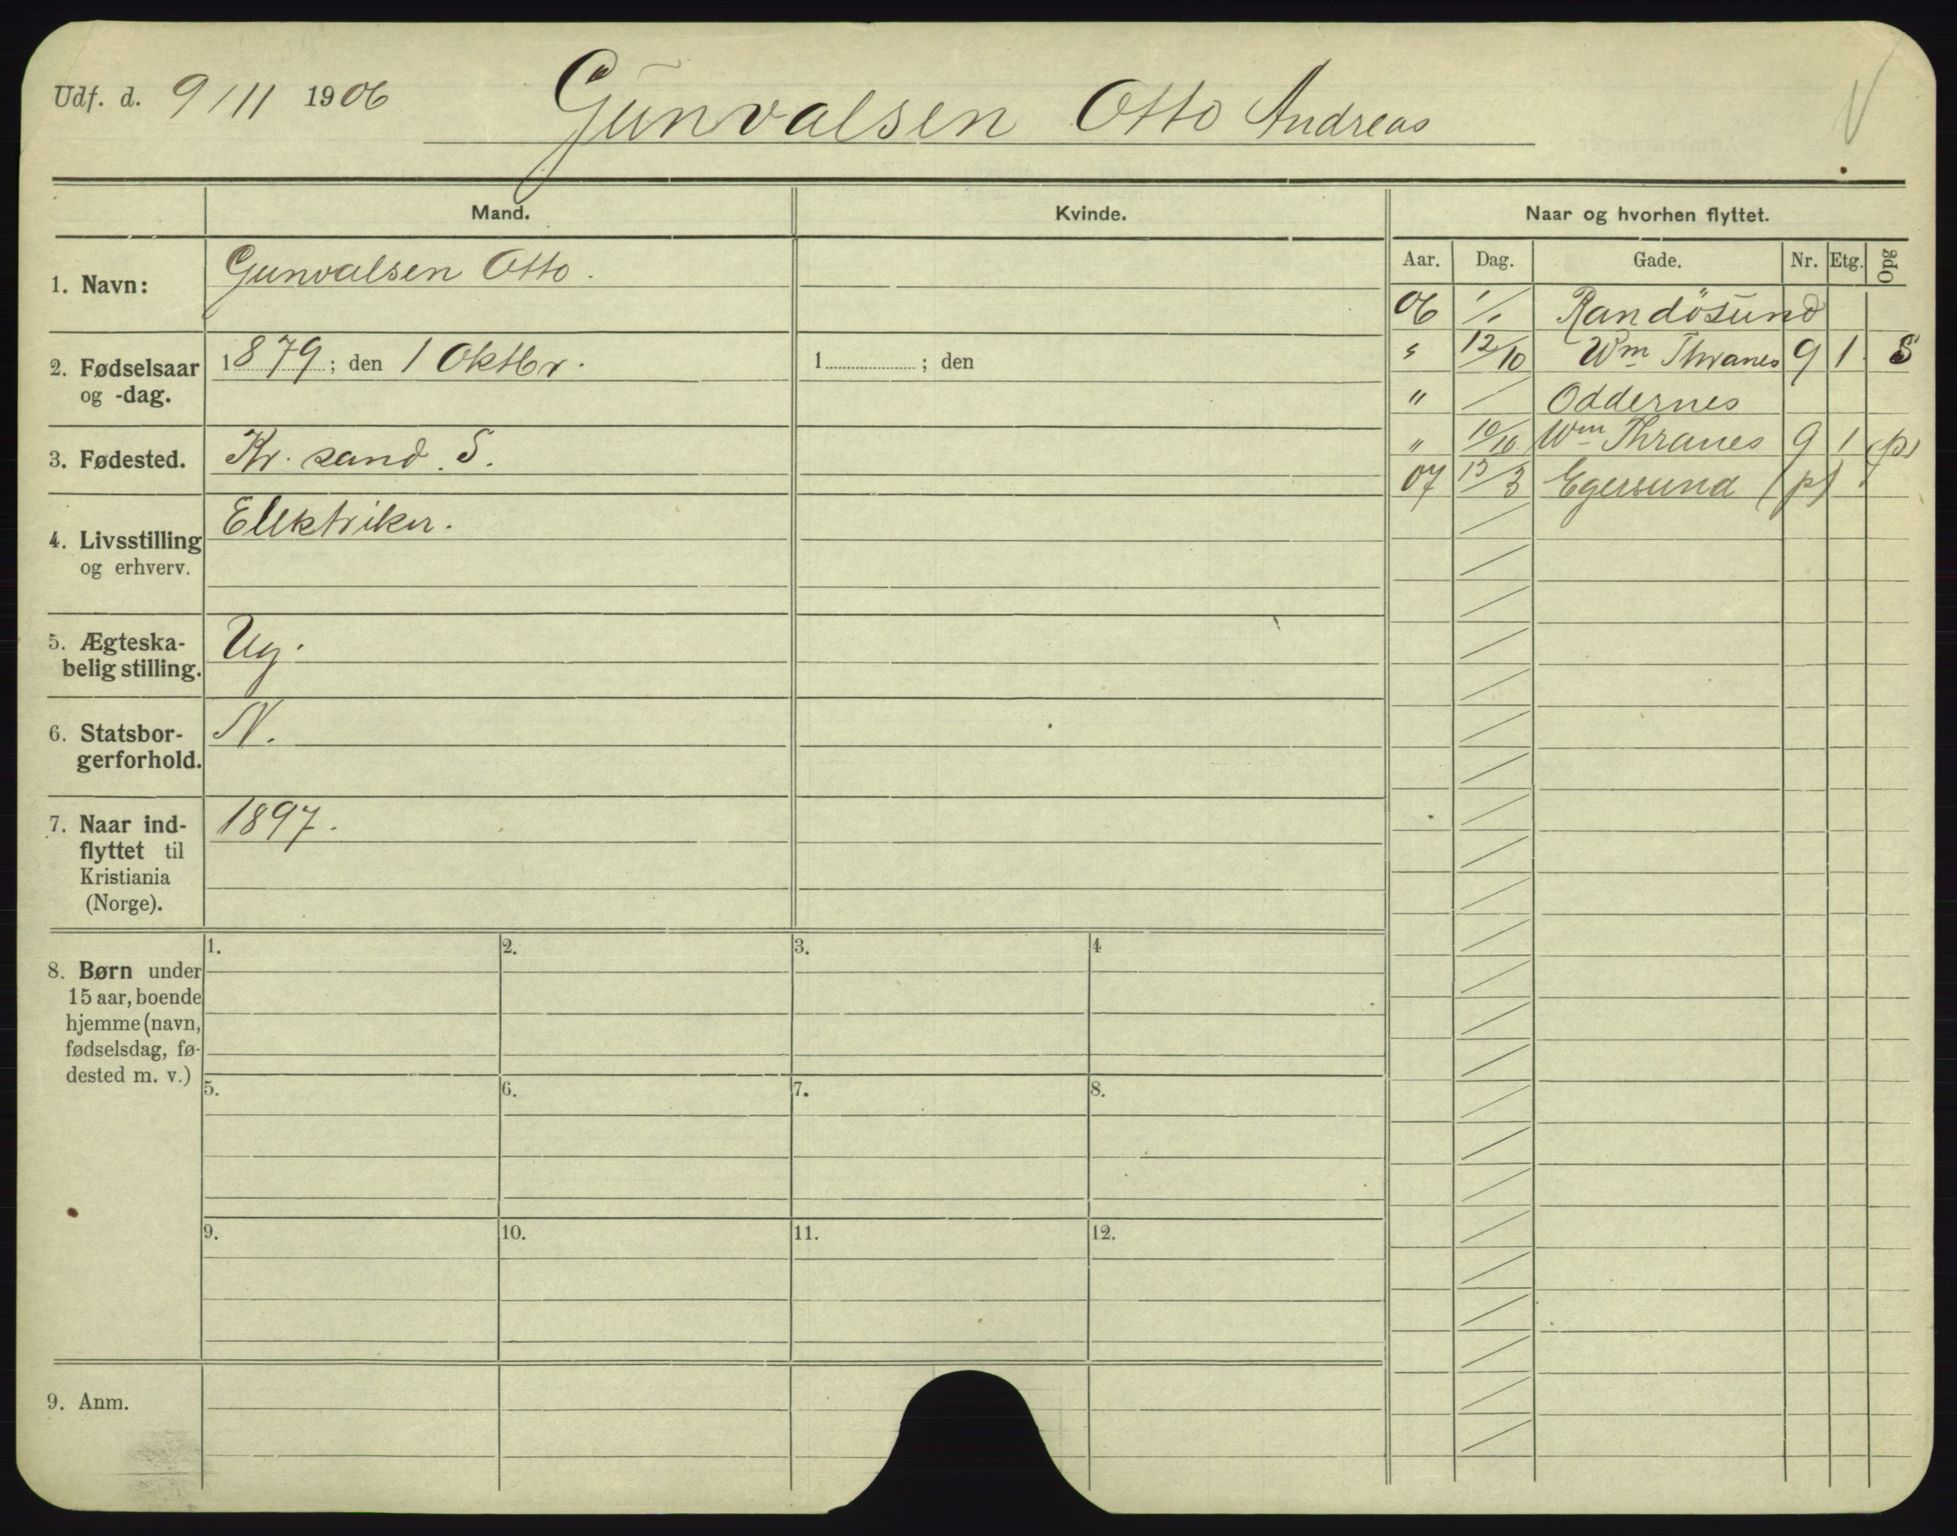 Udf. d. 9/11 1906 Gunvalsen Otto Andreas
Mand. Kvinde. Naar og hvorhen flyttet.
Aar. Dag. Gade. Nr. Etg. Opg
1. Navn: Gunvalsen Otto.
2. Fødselsaar og -dag. 1879; den 1 Oktbr. 1 ; den
3. Fødested. Kr. sand. S.
4. Livsstilling og erhverv. Elektriker.
5. Ægteska-
belig stilling. Ug.
6. Statsbor-
gerforhold. N.
7. Naar ind-
flyttet til
Kristiania
(Norge). 1897.
06 1/1 Randösund
" 12/10 Wm Thranes 9 1. S
" / Oddernes
" 10/10 Wm Thranes 9 1 (p)
07 13/3 Egersund (p)
8. Børn under
15 aar, boende
hjemme (navn,
fødselsdag, fø-
dested m. v.)
1. 2. 3. 4
5. 6. 7. 8.
9. 10. 11. 12.
9. Anm.